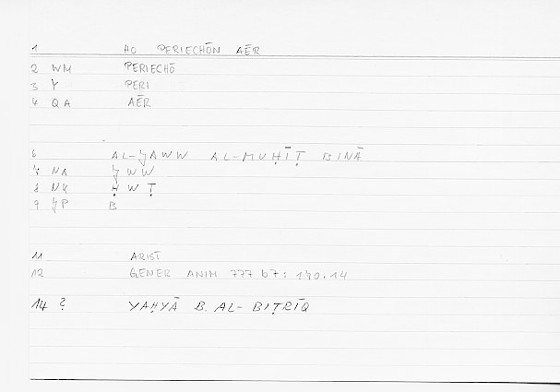 1 AO PERIECHŌN AĒR
2 WM PERIECHŌ
3 Y PERI
4 QA AĒR
6 AL-ǦAWW AL-MUḤĪṬ BINĀ
7 NA ǦWW
8 NX ḤWṬ
9 ǦP B
11 ARIST
12 GENER ANIM 777 b7 : 170.14
14 ? YAḤYĀ B. AL-BIṬRĪQ